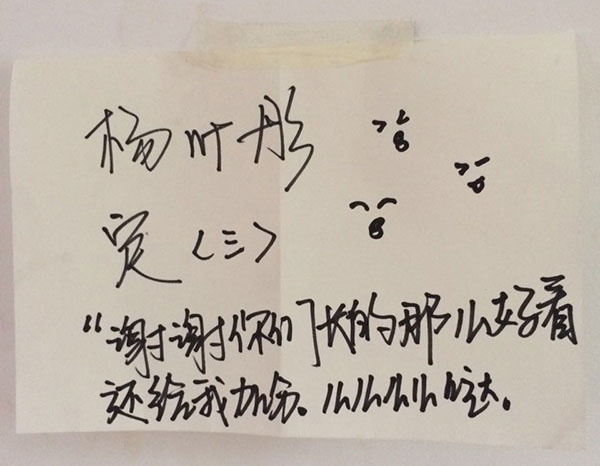 杨叶彤
定〈三〉
“谢谢你们长的那么好看
还给我加分。么么么么哒。